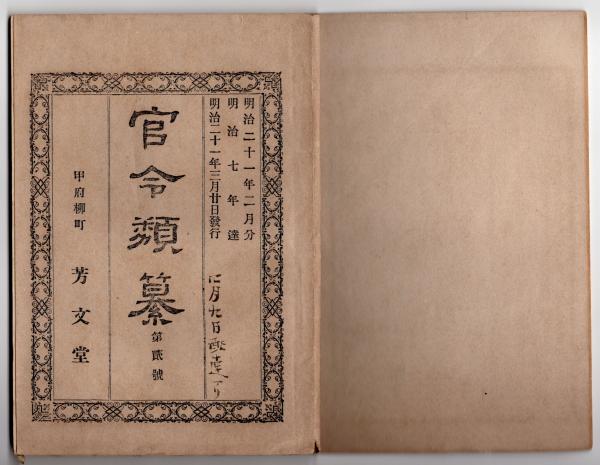 明治二十一年二月分
明治七年達
明治二十一年三月廿日發行
官令類纂
第貳號
甲府柳町 芳文堂